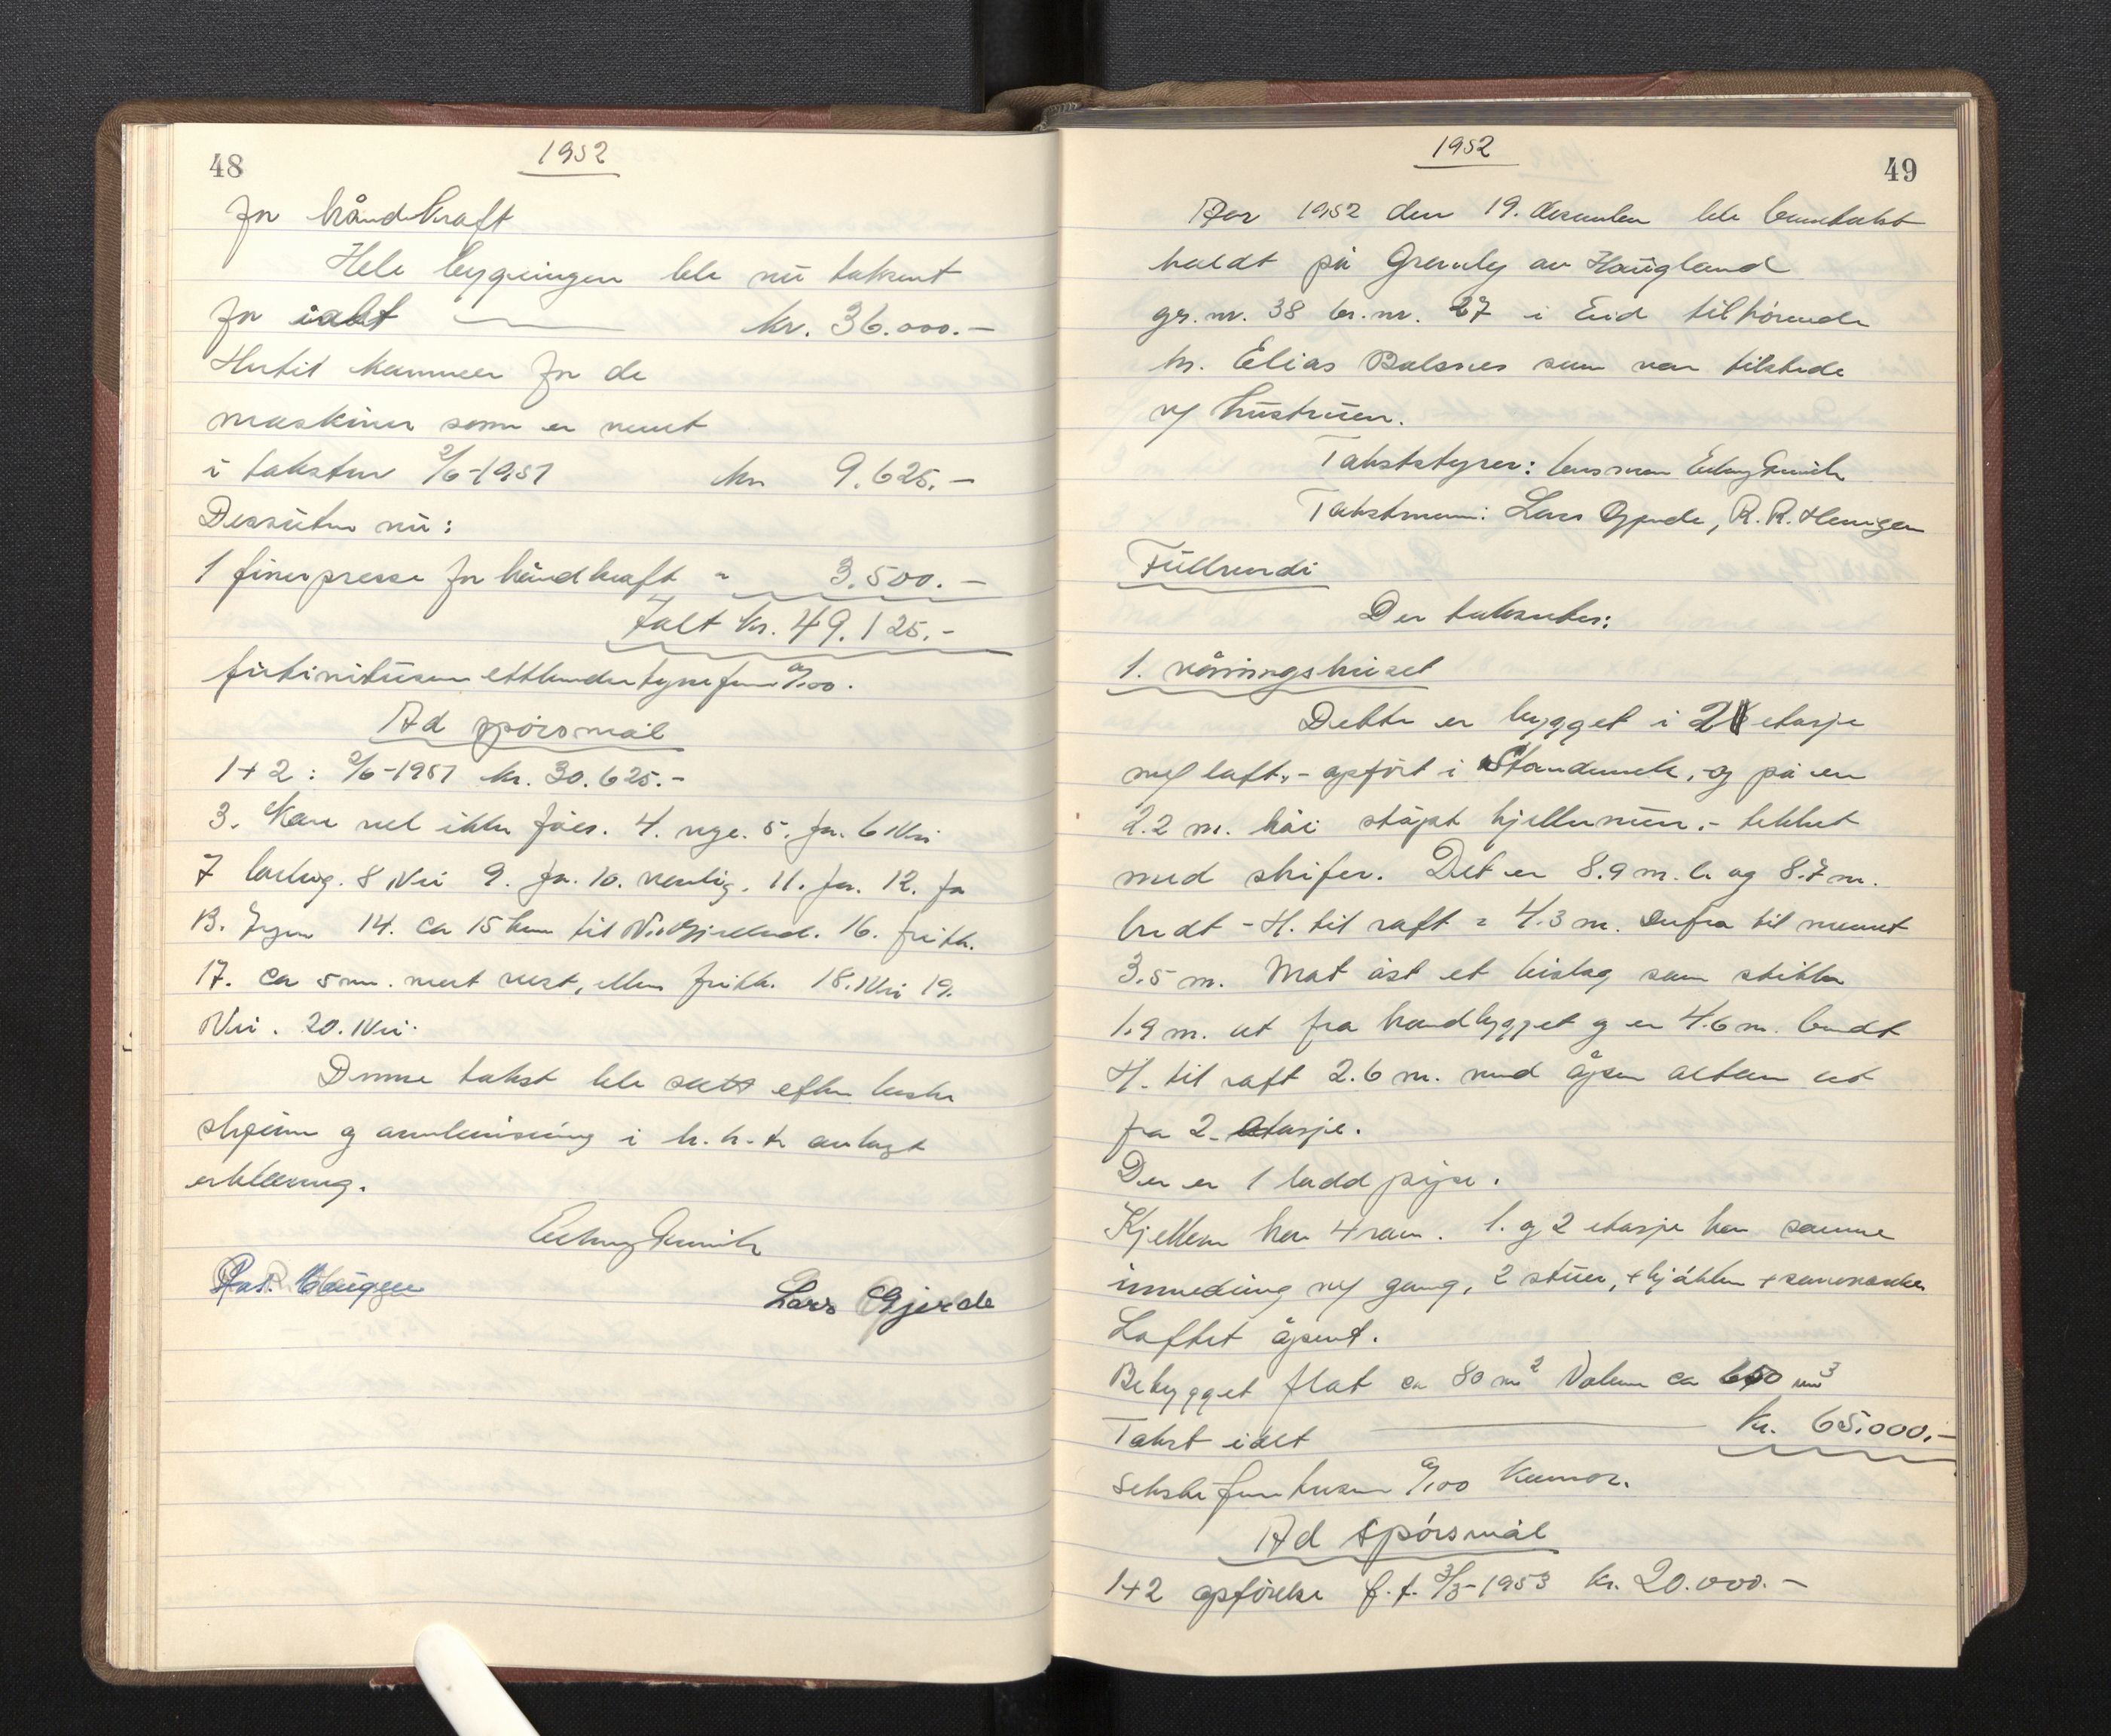 48
1952
for håndkraft
Hele bygningen ble nu taksert
for ialt kr. 36.000.-
Hertil kommer for de
maskiner som er nevnt
i taksten 2/6-1951 kr 9.625.-
Dessuten nu:
1 finerpresse for håndkraft " 3.500.-
Ialt kr. 49.125.-
førtinitusen etthundretyvefem 0/100.
Ad spörsmål
1+2: 2/6-1951 kr. 30.625.-
3. Kan vel ikke fåes. 4. nye. 5. Ja. 6 Nei
7 8 Nei 9. Ja. 10. vanlig. 11. Ja. 12. Ja
13. Ingen 14. ca 15 km til 16. frittl.
17. ca 5 m. mot vest, ellers frittl. 18. Nei 19.
Nei. 20. Nei.
Denne takst ble satt efter beste
skjönn og overbevisning i h.h.t. avlagt
erklæring.
Lars Gjerde
1952
49
Aar 1952 den 19. desember ble branntakst
holdt på Grenely av Haugland
gr.nr. 38 br.nr. 27 i Eid tilhørende
hr. Elias Balsnes som var tilstede
m/ hustruen.
Takststyrer: lensmann
Takstmenn: Lars Gjerde, R. R. Haugen
Fullverdi
Der takseres:
1. våningshuset
Dette er bygget i 2 etasje
m/ loft,- opfört i Standerverk, og på en
2.2 m. höi stöpt kjellermur.- tekket
med skifer. Det er 8.9 m. l. og 8.7 m.
bredt - H. til raft = 4.3 m. Derfra til mønet
3.5 m. Mot öst et bislag som stikker
1.9 m. ut fra hovedbygget og er 4.6 m. bredt
H. til raft 2.6 m. med åpen altan ut
fra 2. etasje.
Der er 1 ladd pipe.
Kjelleren har 4 rom. 1. og 2 etasje har samme
innredning m/ gang, 2 stuer, + kjökken + soveværelse
Loftet åpent.
Bebygget flat ca 80 m² Volum ca m³
Takst ialt kr. 65.000.-
sekstifemtusen 0/100 kroner.
Ad spörsmål
1+2 opförelse f.t. 3/3-1953 kr. 20.000.-